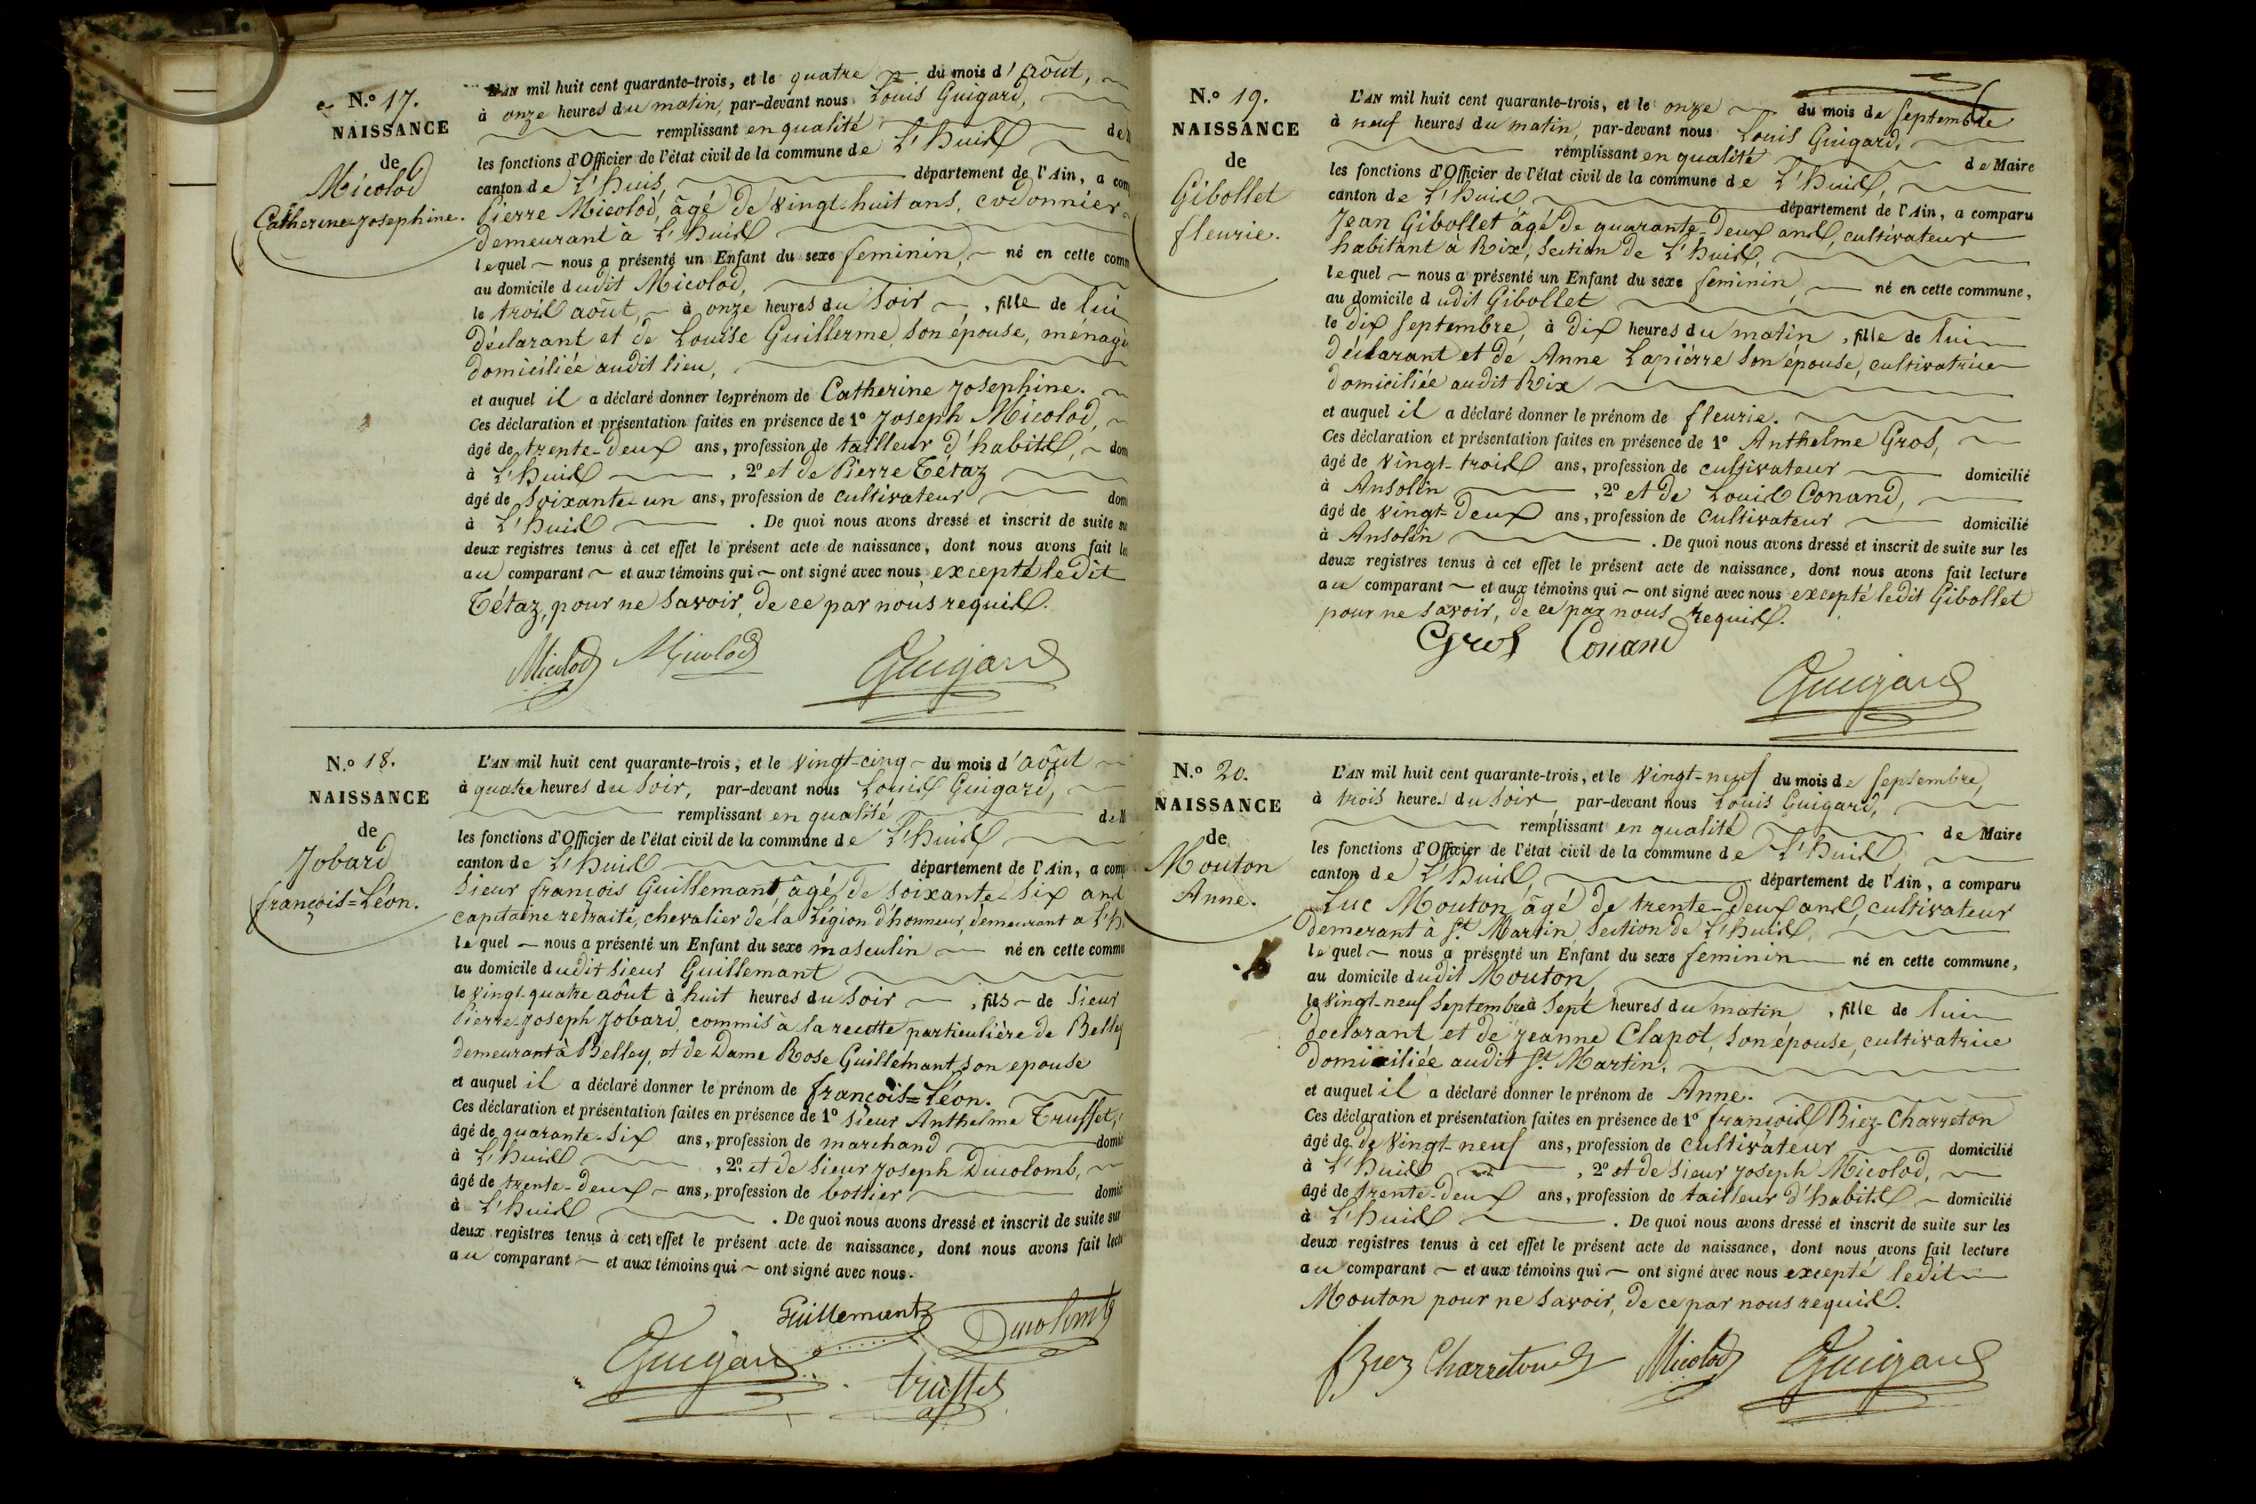 N.º 17.
NAISSANCE
de
Micolod
Catherine-Josephine.
L'AN mil huit cent quarante-trois, et le quatre du mois d'Août,
à onze heures du matin, par-devant nous Louis Guigard,
remplissant en qualité de
les fonctions d'Officier de l'état civil de la commune de L'huis
canton de L'huis, département de l'Ain, a com
Pierre Micolod, âgé de vingt-huit ans, cordonnier
demeurant à L'huis
lequel nous a présenté un Enfant du sexe feminin, né en cette comm
au domicile dudit Micolod,
le trois août, à onze heures du soir, fille de lui
déclarant et de Louise Guillerme, son épouse, ménagè
domiciliée audit lieu,
et auquel il a déclaré donner les prénom de Catherine Josephine.
Ces déclaration et présentation faites en présence de 1º Joseph Micolod,
âgé de trente-deux ans, profession de tailleur d'habits, dom
à L'huis, 2º et de Pierre Tétaz
âgé de soixante-un ans, profession de cultivateur dom
à L'huis. De quoi nous avons dressé et inscrit de suite su
deux registres tenus à cet effet le présent acte de naissance, dont nous avons fait le
au comparant et aux témoins qui ont signé avec nous excepté ledit
Tétaz, pour ne savoir, de ce par nous requis.
Micolod Micolod Guigard
N.º 18.
NAISSANCE
de
Jobard
françois=Léon.
L'AN mil huit cent quarante-trois, et le vingt-cinq du mois d'août
à quatre heures du soir, par-devant nous Louis Guigard,
remplissant en qualité de M
les fonctions d'Officier de l'état civil de la commune de L'huis
canton de L'huis département de l'Ain, a comp
Sieur françois Guillemant, âgé de soixante-six ans
capitaine retraité, chevalier de la Légion d'honneur, demeurant a L'h
lequel nous a présenté un Enfant du sexe masculin né en cette commu
au domicile dudit sieur Guillemant
le vingt-quatre août à huit heures du soir, fils de Sieur
Pierre-Joseph Jobard, commis à la recette particulière de Belley
demeurant à Belley, et de Dame Rose Guillemant, son epouse
et auquel il a déclaré donner le prénom de françois=Léon.
Ces déclaration et présentation faites en présence de 1º sieur Anthelme Truffet,
âgé de quarante-six ans, profession de marchand domic
à L'huis, 2º. et de sieur Joseph Ducolomb,
âgé de trente-deux ans, profession de bottier, domic
à L'huis. De quoi nous avons dressé et inscrit de suite sur
deux registres tenus à cet effet le présent acte de naissance, dont nous avons fait lectu
au comparant et aux témoins qui ont signé avec nous.
Guillemant Ducolomb
Guigard truffet
N.º 19.
NAISSANCE
de
Gibollet
fleurie.
L'AN mil huit cent quarante-trois, et le onze du mois de Septembre
à neuf heures du matin, par-devant nous Louis Guigard,
remplissant en qualité de Maire
les fonctions d'Officier de l'état civil de la commune de L'huis,
canton de L'huis, département de l'Ain, a comparu
Jean Gibollet âgé de quarante-deux ans, cultivateur
habitant à Rix, section de L'huis,
lequel nous a présenté un Enfant du sexe feminin, né en cette commune,
au domicile dudit Gibollet
le dix septembre, à dix heures du matin, fille de lui
déclarant et de Anne Lapierre son épouse, cultivatrice
domiciliée audit Rix
et auquel il a déclaré donner le prénom de fleurie.
Ces déclaration et présentation faites en présence de 1º Anthelme Gros,
âgé de vingt-trois ans, profession de cultivateur domicilié
à Ansolin, 2º et de Louis Conand,
âgé de vingt-deux ans, profession de cultivateur domicilié
à Ansolin. De quoi nous avons dressé et inscrit de suite sur les
deux registres tenus à cet effet le présent acte de naissance, dont nous avons fait lecture
au comparant et aux témoins qui ont signé avec nous excepté ledit Gibollet
pour ne savoir, de ce par nous requis.
Gros Conand
Guigard
N.º 20.
NAISSANCE
de
Mouton
Anne.
L'AN mil huit cent quarante-trois, et le vingt-neuf du mois de septembre,
à trois heures du soir par-devant nous Louis Guigard,
remplissant en qualité de Maire
les fonctions d'Officier de l'état civil de la commune de L'huis,
canton de L'huis, département de l'Ain, a comparu
Luc Mouton, âgé de trente-deux ans, cultivateur
demerant à St. Martin, section de L'huis,
lequel nous a présenté un Enfant du sexe feminin né en cette commune,
au domicile dudit Mouton,
le vingt-neuf septembre à sept heures du matin, fille de lui
declarant et de Jeanne Clapot, son épouse, cultivatrice
domiciliée audit St. Martin,
et auquel il a déclaré donner le prénom de Anne.
Ces déclaration et présentation faites en présence de 1º françois Biez-Charreton
âgé de de vingt-neuf ans, profession de cultivateur domicilié
à L'huis, 2º et de sieur Joseph Micolod,
âgé de trente-deux ans, profession de tailleur d'habits domicilié
à L'huis. De quoi nous avons dressé et inscrit de suite sur les
deux registres tenus à cet effet le présent acte de naissance, dont nous avons fait lecture
au comparant et aux témoins qui ont signé avec nous excepté ledit
Mouton pour ne savoir, de ce par nous requis.
Biez Charreton Micolod Guigard